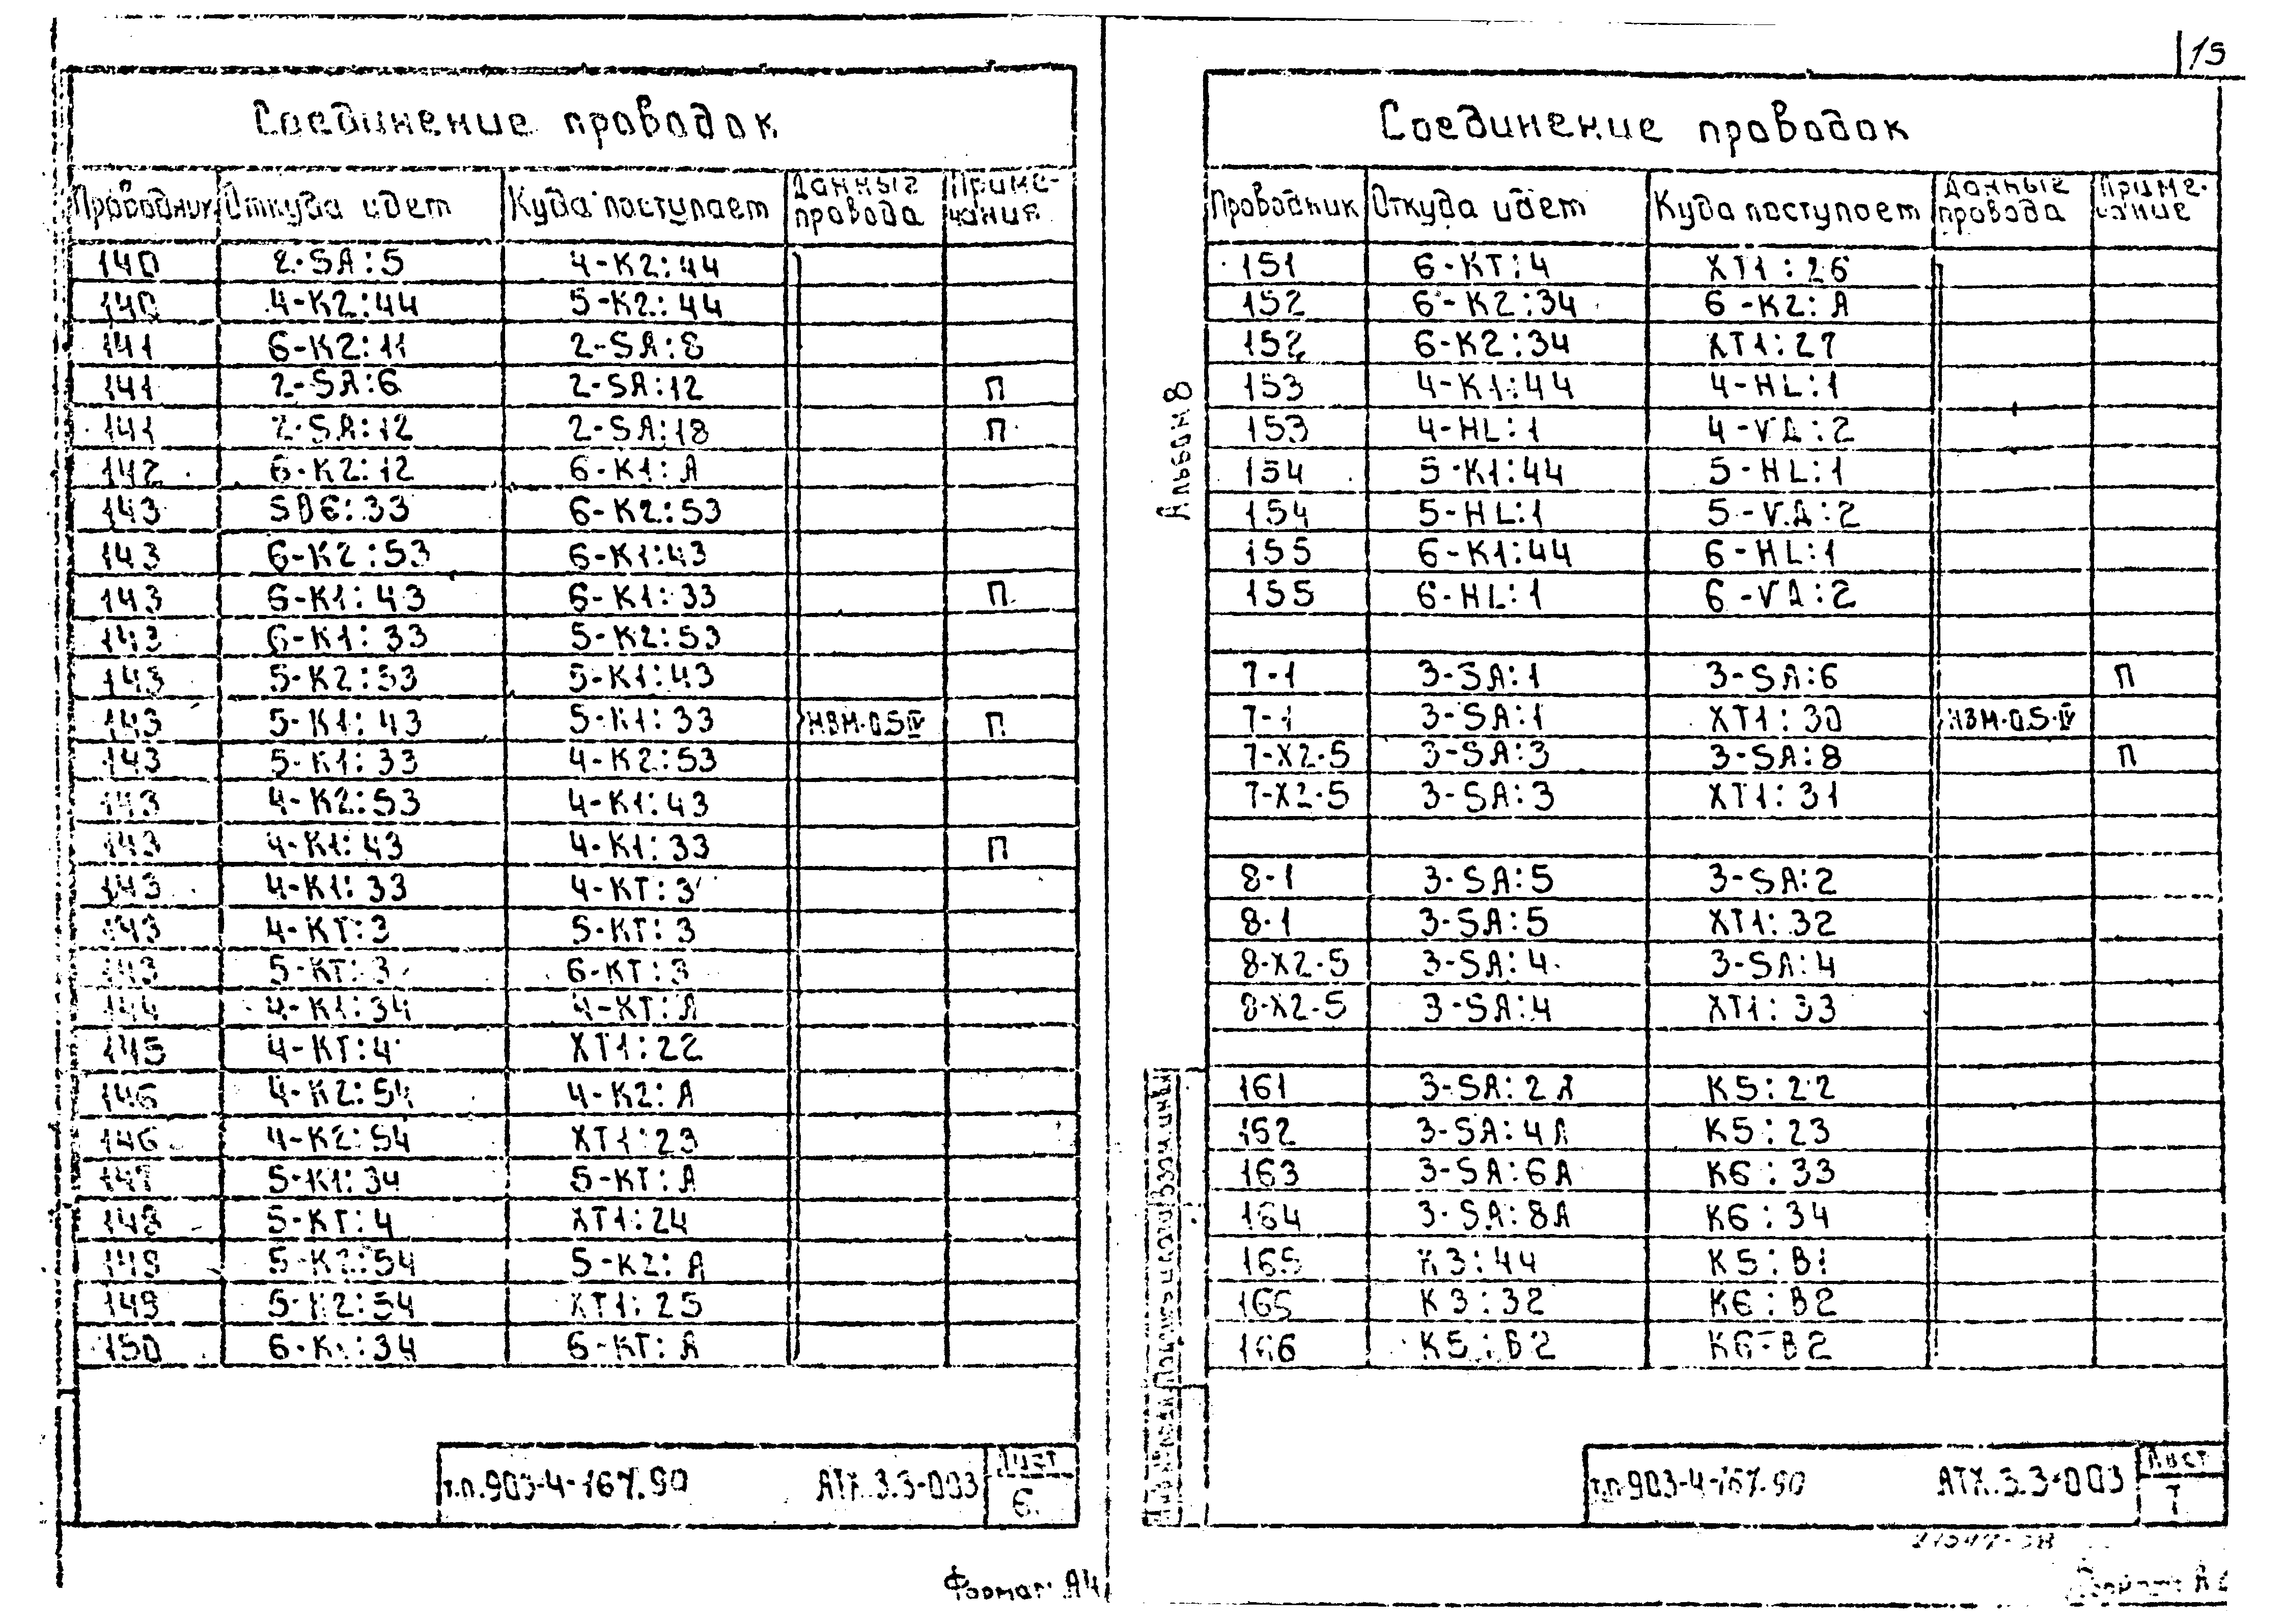 19
Соединение проводок
Проводник Откуда идет Куда поступает Данные провода Приме-чания
140 2-SA:5 4-K2:44
140 4-K2:44 5-K2:44
141 6-K2:11 2-SA:8
141 2-SA:6 2-SA:12 П
141 2-SA:12 2-SA:18 П
142 6-K2:12 6-K1:A
143 SB6:33 6-K2:53
143 6-K2:53 6-K1:43
143 6-K1:43 6-K1:33 П
143 6-K1:33 5-K2:53
143 5-K2:53 5-K1:43
143 5-K1:43 5-K1:33 НВМ-0.5 IV П
143 5-K1:33 4-K2:53
143 4-K2:53 4-K1:43
143 4-K1:43 4-K1:33 П
143 4-K1:33 4-KT:3
143 4-KT:3 5-KT:3
143 5-KT:3 6-KT:3
144 4-K1:34 4-KT:A
145 4-KT:4 XT1:22
146 4-K2:54 4-K2:A
146 4-K2:54 XT1:23
147 5-K1:34 5-KT:A
148 5-KT:4 XT1:24
149 5-K2:54 5-K2:A
149 5-K2:54 XT1:25
150 6-K1:34 6-KT:A
т.п.903-4-167.90 АТХ.3.3-003 Лист 6
Формат А4
Альбом 8
Соединение проводок
Проводник Откуда идет Куда поступает Данные провода Приме-чание
151 6-KT:4 XT1:26
152 6-K2:34 6-K2:A
152 6-K2:34 XT1:27
153 4-K1:44 4-HL:1
153 4-HL:1 4-VД:2
154 5-K1:44 5-HL:1
154 5-HL:1 5-VД:2
155 6-K1:44 6-HL:1
155 6-HL:1 6-VД:2
7-1 3-SA:1 3-SA:6 П
7-1 3-SA:1 XT1:30 НВМ-0.5-IV
7-X2-5 3-SA:3 3-SA:8 П
7-X2-5 3-SA:3 XT1:31
8-1 3-SA:5 3-SA:2
8-1 3-SA:5 XT1:32
8-X2-5 3-SA:4 3-SA:4
8-X2-5 3-SA:4 XT1:33
161 3-SA:2A K5:22
152 3-SA:4A K5:23
163 3-SA:6A K6:33
164 3-SA:8A K6:34
165 K3:44 K5:B1
165 K3:32 K6:B2
166 K5:B2 K6-B2
т.п.903-4-167.90 АТХ.3.3-003 Лист 7